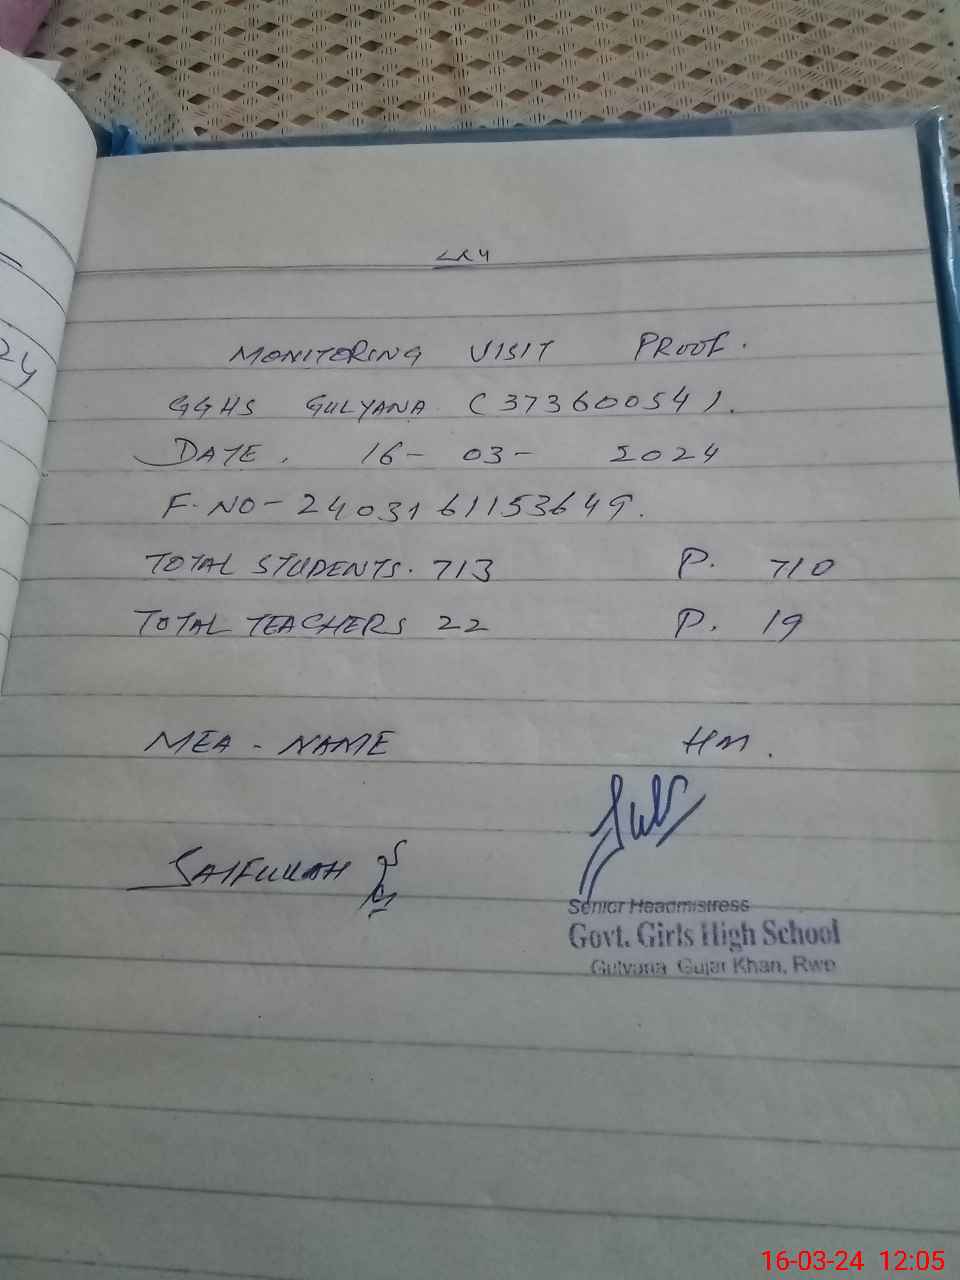 MONITORING VISIT PROOF.
GGHS GULYANA (37360054).
DATE. 16- 03- 2024
F.NO- 2403161153649.
TOTAL STUDENTS. 713 P. 710
TOTAL TEACHERS 22 P. 19
MEA - NAME HM.
SAIFULLAH
Senior Headmistress
Govt. Girls High School
Gulyana Gujar Khan, Rwp
16-03-24 12:05